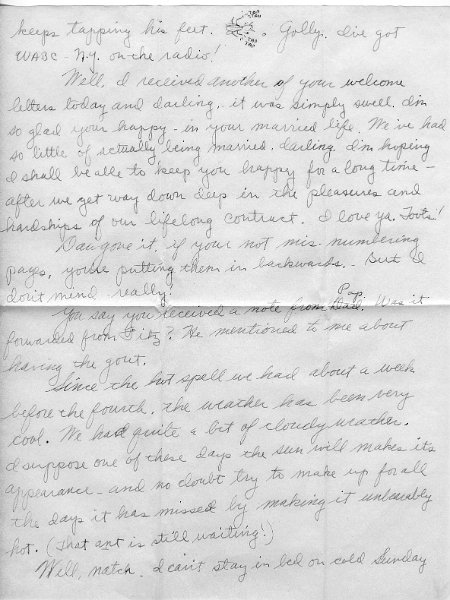 keeps tapping his feet. TAP TAP TAP TAP Golly. I've got
WABC - N.Y. on the radio!
Well, I received another of your welcome
letters today and darling, it was simply swell. I'm
so glad your happy - in your married life. We've had
so little of actually being married, darling. I'm hoping
I shall be able to keep you happy for a long time -
after we get way down deep in the pleasures and
hardships of our lifelong contract. I love ya, Toots!
Dau gone it, if your not mis-numbering
pages, you're putting them in backwards. - But I
don't mind really.
Pop
You say you received a note from Dad. Was it
forwarded from Fitz? He mentioned to me about
having the gout.
Since the hot spell we had about a week
before the fourth, the weather has been very
cool. We had quite a bit of cloudy weather.
I suppose one of these days the sun will makes its
appearance - and no doubt try to make up for all
the days it has missed by making it unbearably
hot. (That ant is still waiting!)
Well, natch. I can't stay in bed on cold Sunday